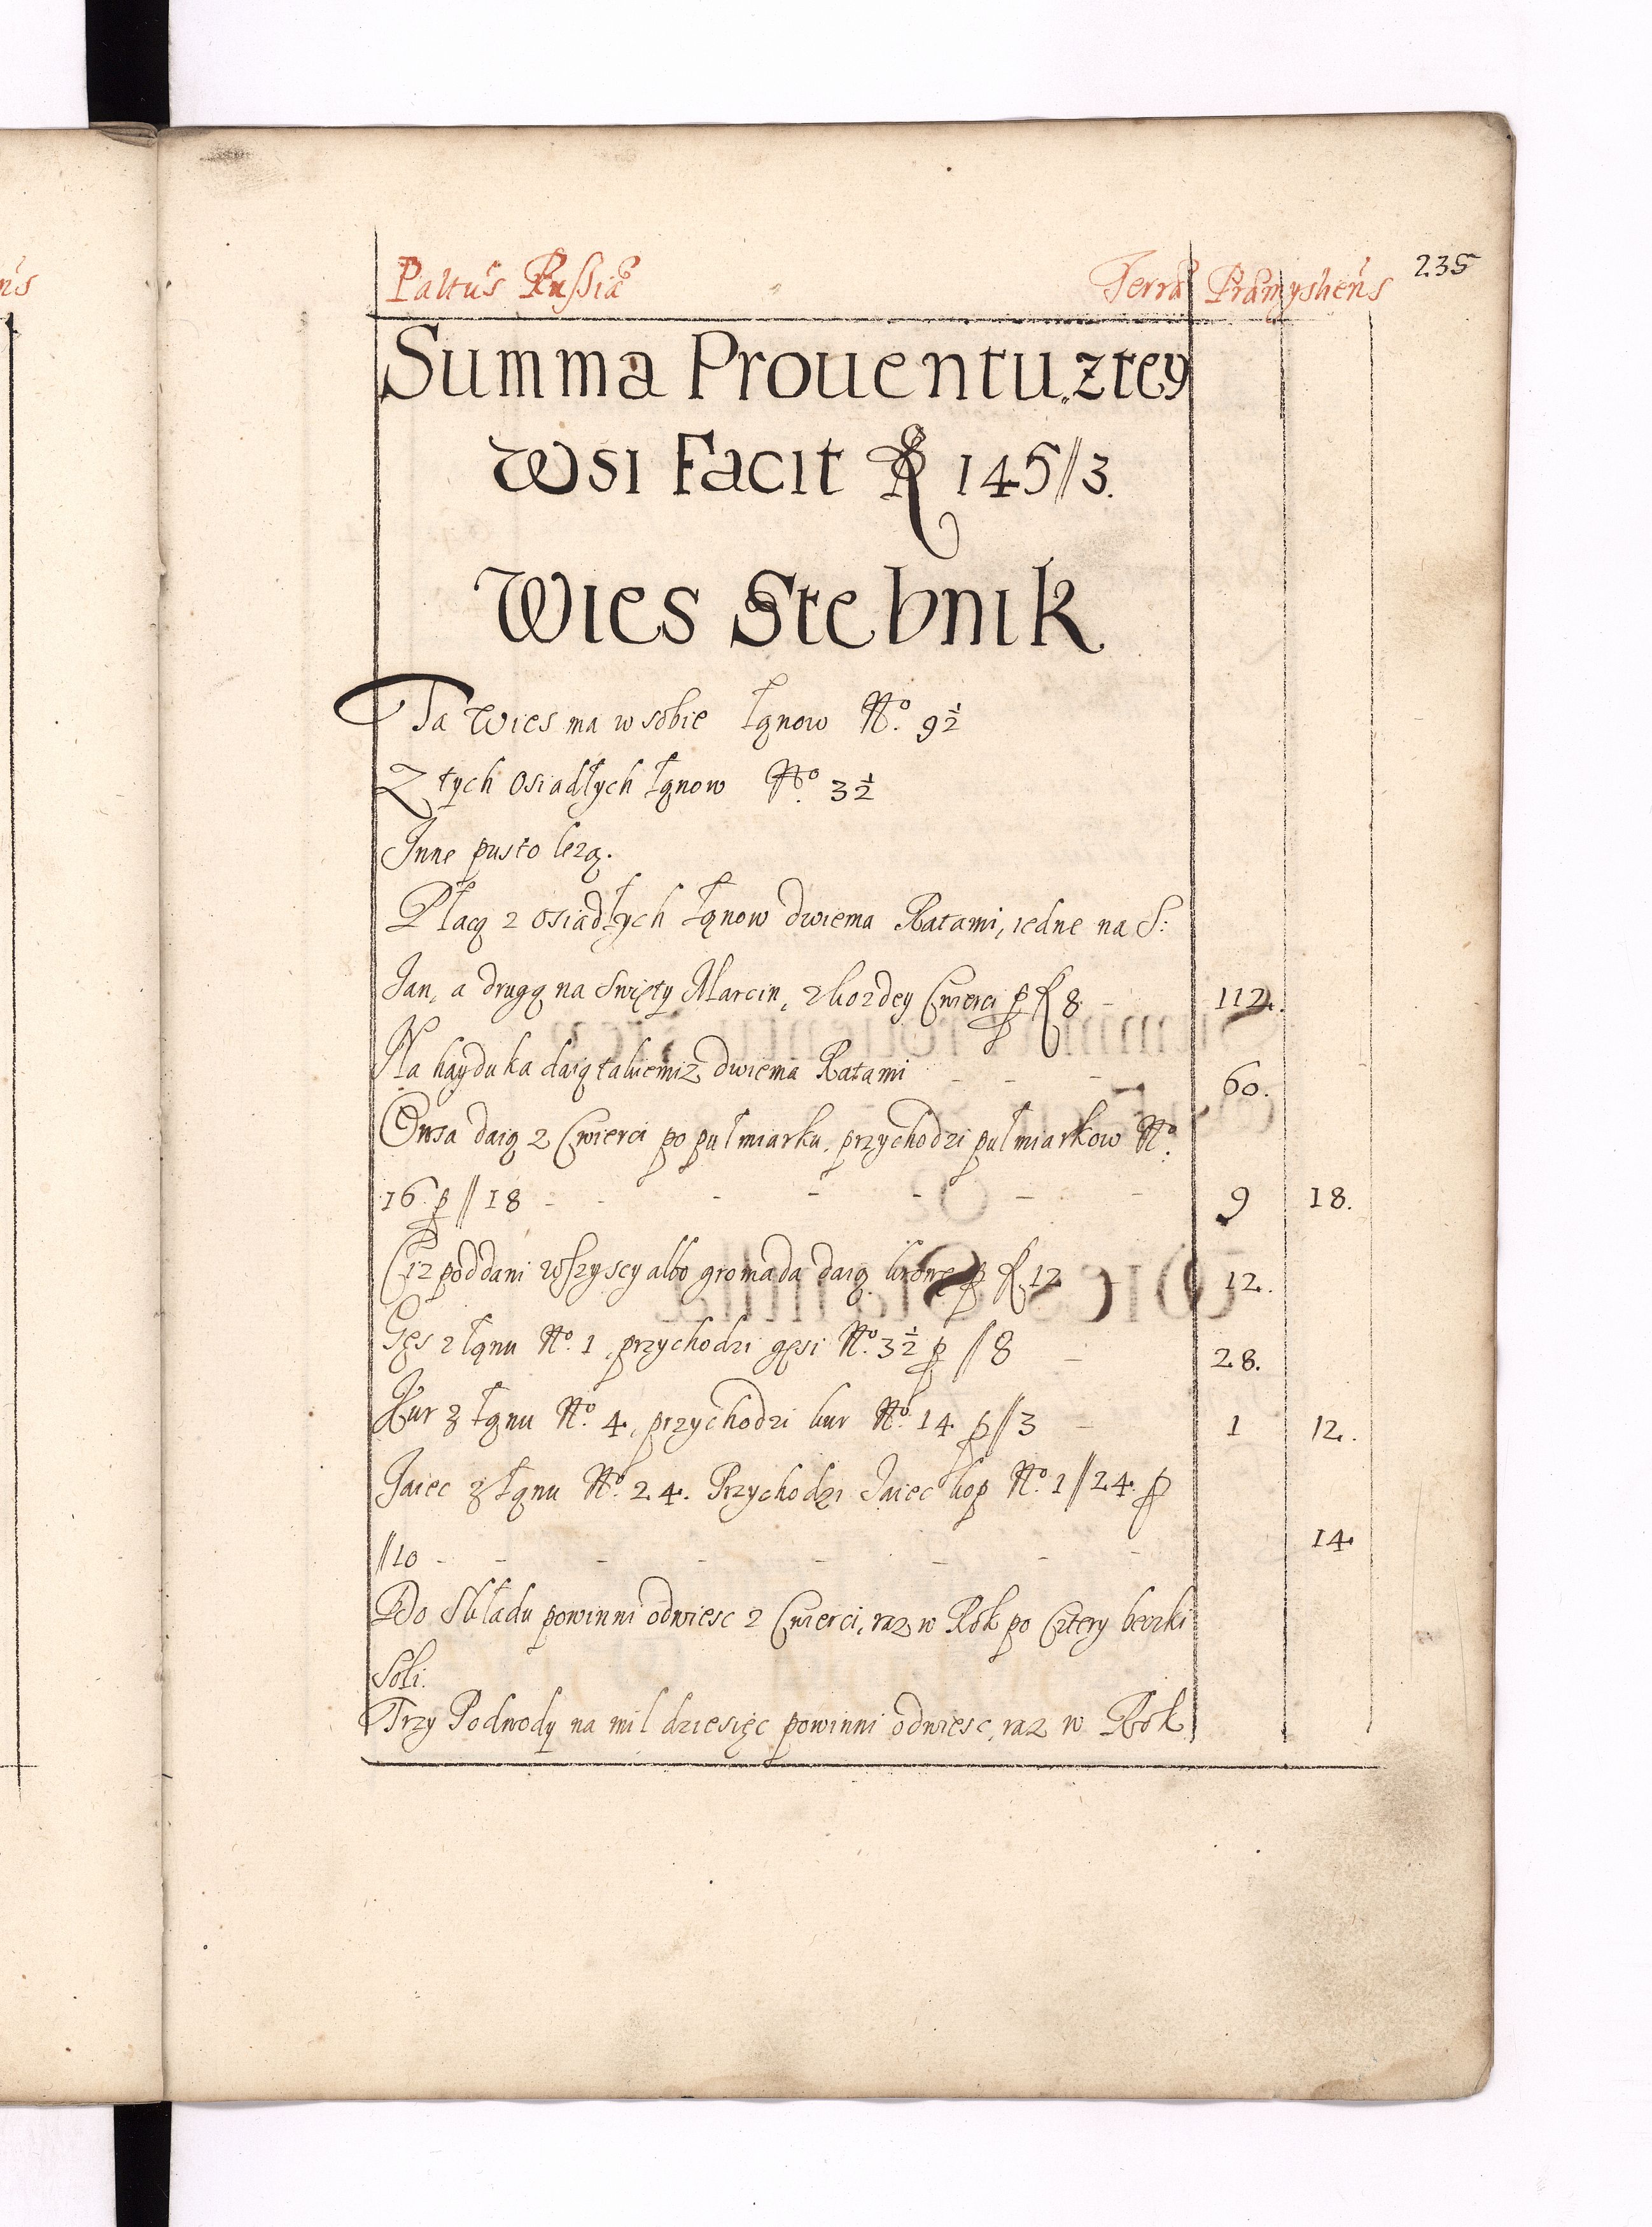 Paltus Russiæ Terræ Præmyslien̄s 235
Summa Prouentu z tey
Wsi Facit ℟ 145//3.
Wies Stebnik
Ta Wies ma w sobie Łąnow No. 9½
Z tych Osiadłych Łąnow No. 3½
Inne pusto lezą.
Płacą z osiadłych Łąnow dwiema Ratami, iedne na S:
Jan, a drugą na Swięty Marcin, z kozdey Cwierci p ƒ 8 - 112.
Na hayduka daią takiemiz dwiema Ratami - - - 60.
Owsa daią z Cwierci po pułmiarku, przychodzi pułmiarkow No.
16 p //18 - - - - - - - 9 18.
Ciz poddani wszyscy albo gromada daią krowę p ƒ 12 12.
Gęs z łąnu No. 1, przychodzi gęsi No. 3½ p //8 - 28.
Kur z Łąnu No. 4, przychodzi kur No. 14 p //3 - 1 12.
Jaiec z Łąnu No. 24. Przychodzi Jaiec kop No. 1//24. p
//10 - - - - - - - - 14
Do Składu powinni odwiesc z Cwierci, raz w Rok po Cztery beczki
Soli.
Trzy Podwody na mil dziesięc powinni odwiesc, raz w Rok